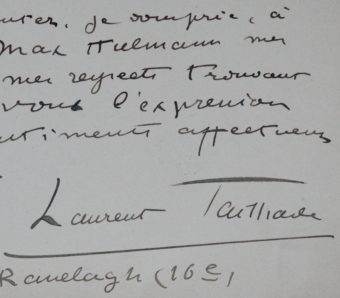 je vous prie, à
Max Hulmann mes
mes respects trouvant
vous l'expression
sentiments affectueux
Laurent Tailhade
Ranelagh (16e)